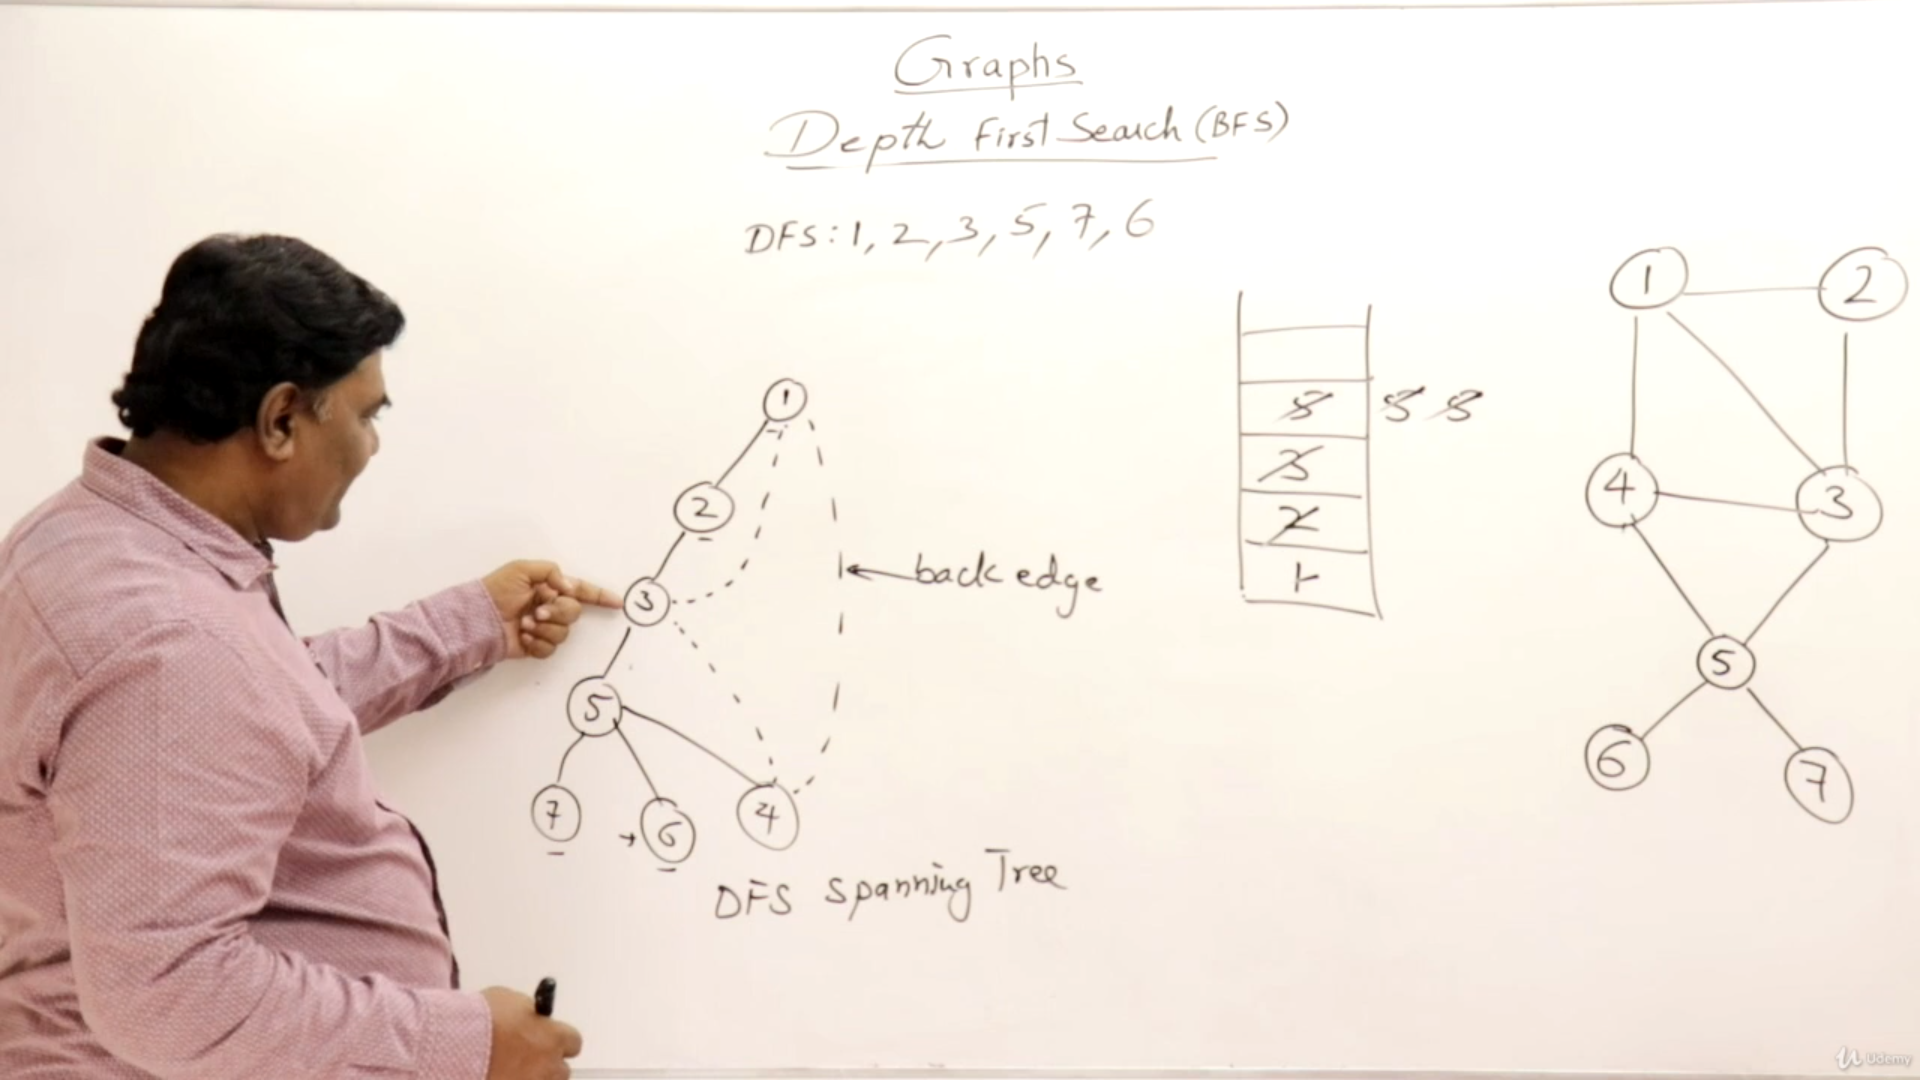 Graphs
Depth First Search (BFS)
DFS: 1, 2, 3, 5, 7, 6
1
2
3
5
7
6
4
back edge
DFS Spanning Tree
5 5 5
3
2
1
1
2
4
3
5
6
7
Udemy